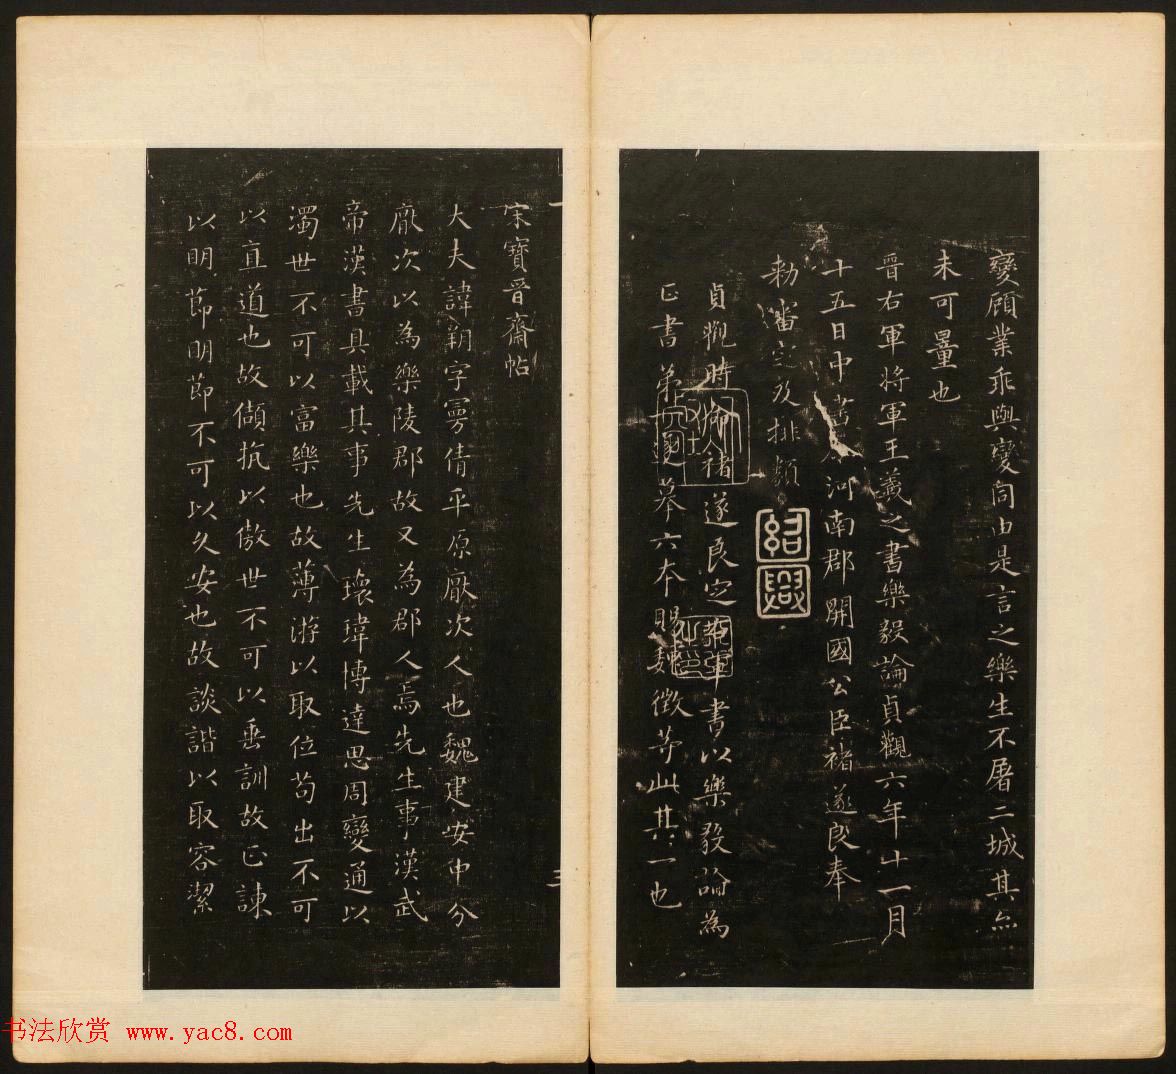 變顧業乖與變同由是言之樂生不屠二城其亦
未可量也
晉右軍將軍王羲之書樂毅論貞觀六年十一月
十五日中書河南郡開國公臣褚遂良奉
勅審定及排類
紹興
貞觀時褚遂良定右軍書以樂毅論為
正書第摹六本賜魏徵等此其一也
宋寶晉齋帖
大夫諱朔字曼倩平原厭次人也魏建安中分
厭次以為樂陵郡故又為郡人焉先生事漢武
帝漢書具載其事先生瓌瑋博達思周變通以
濁世不可以富樂也故薄游以取位苟出不可
以直道也故頡抗以傲世不可以垂訓故正諫
以明節明節不可以久安也故談諧以取容潔
书法欣赏 www.yac8.com